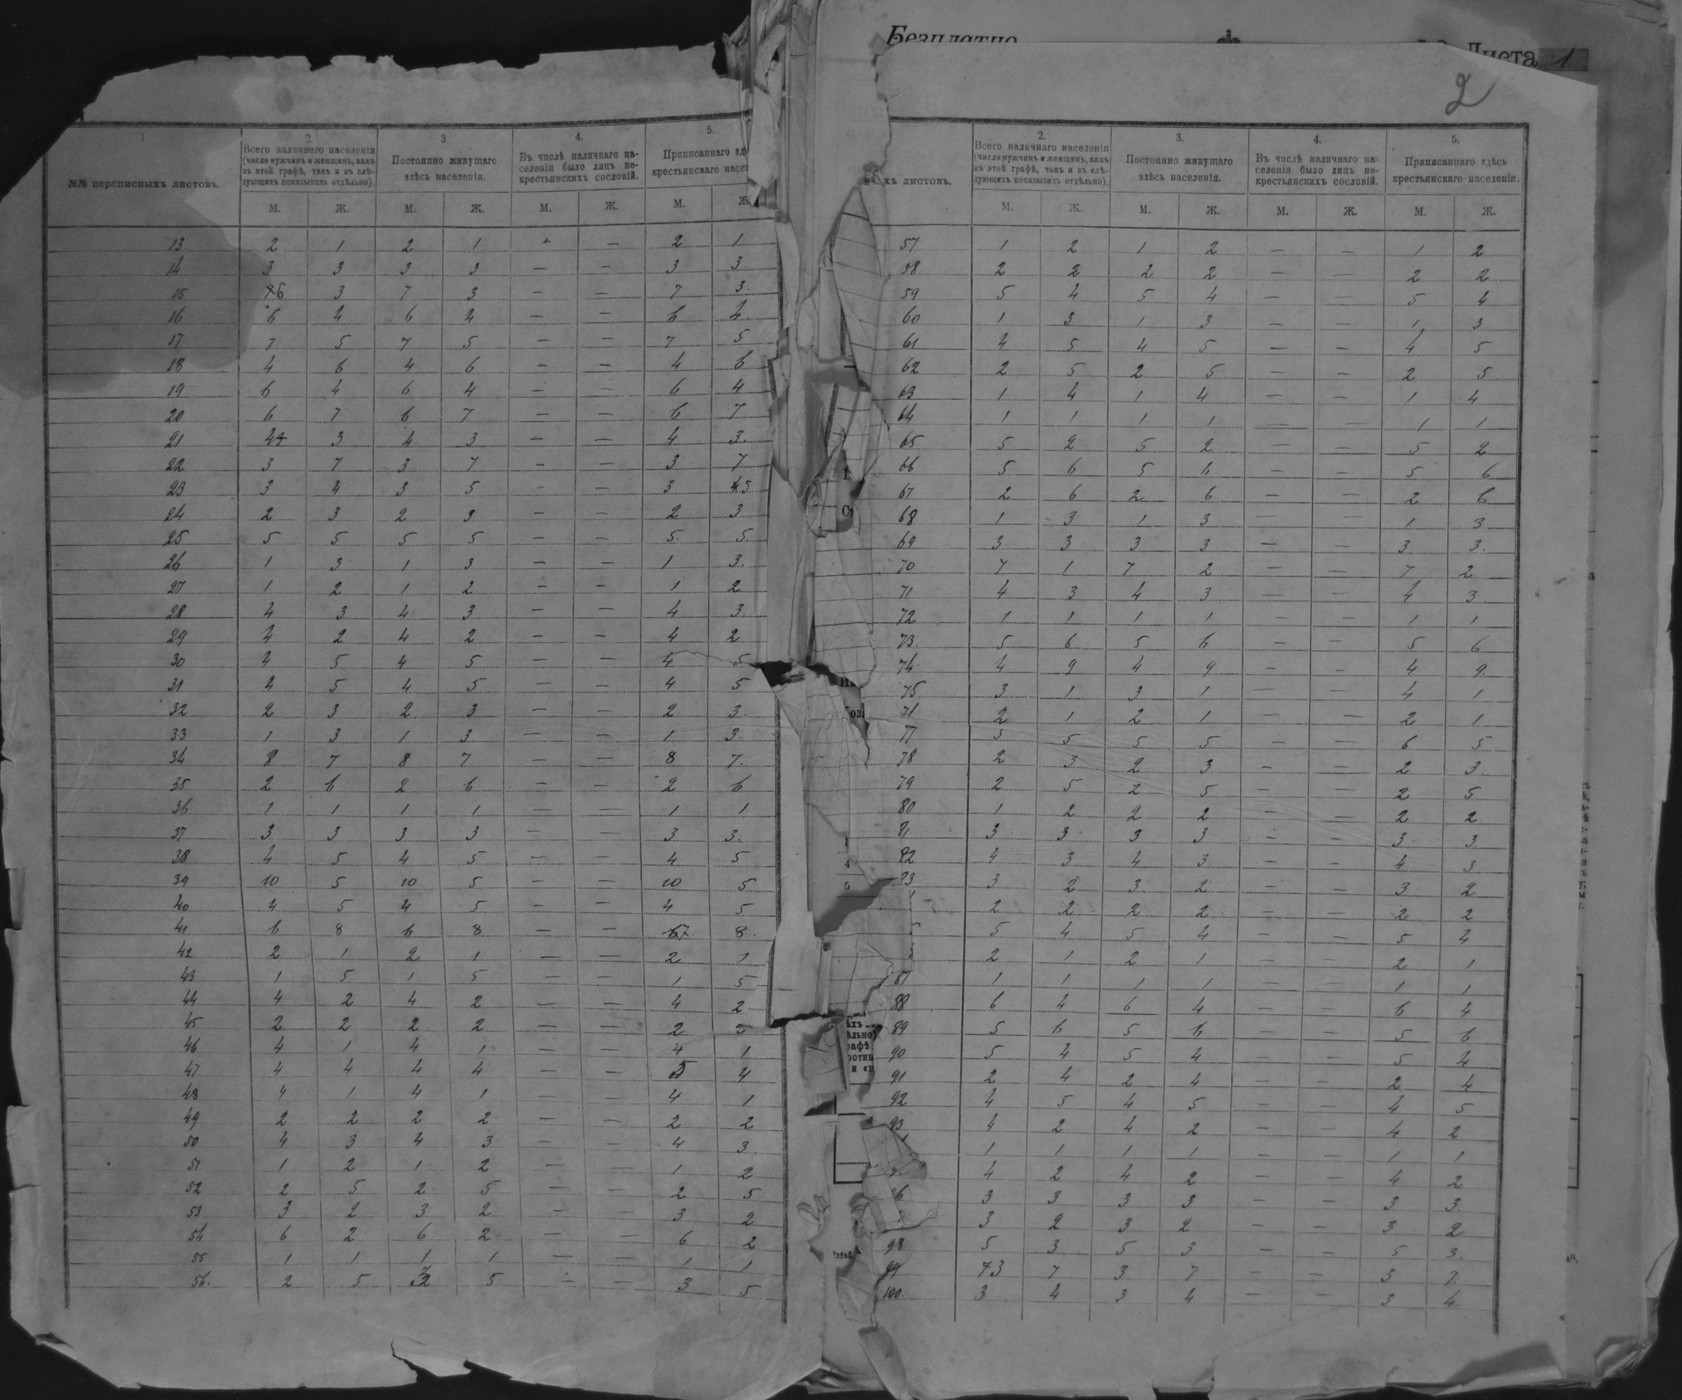 Безплатно
Листа 1
2
1
2.
3
4.
5.
№№ переписныхъ листовъ.
Всего наличнаго населенія
(число мужчинъ и женщинъ, какъ
въ этой графѣ, такъ и въ слѣ-
дующихъ показывать отдѣльно).
Постоянно живущаго
здѣсь населенія.
Въ числѣ наличнаго на-
селенія было лицъ не-
крестьянскихъ сословій.
Приписаннаго
крестьянскаго
М. Ж. М. Ж. М. Ж. М. Ж.
13 2 1 2 1 - - 2 1
14 3 3 3 3 - - 3 3
15 6 3 7 3 - - 7 3
16 6 4 6 4 - - 6 4
17 7 5 7 5 - - 7 5
18 4 6 4 6 - - 4 6
19 6 4 6 4 - - 6 4
20 6 7 6 7 - - 6 7
21 4 3 4 3 - - 4 3
22 3 7 3 7 - - 3 7
23 3 4 3 5 - - 3 5
24 2 3 2 3 - - 2 3
25 5 5 5 5 - - 5 5
26 1 3 1 3 - - 1 3
27 1 2 1 2 - - 1 2
28 4 3 4 3 - - 4 3
29 4 2 4 2 - - 4 2
30 4 5 4 5 - - 4 5
31 4 5 4 5 - - 4 5
32 2 3 2 3 - - 2 3
33 1 3 1 3 - - 1 3
34 8 7 8 7 - - 8 7
35 2 6 2 6 - - 2 6
36 1 1 1 1 - - 1 1
37 3 3 3 3 - - 3 3
38 4 5 4 5 - - 4 5
39 10 5 10 5 - - 10 5
40 4 5 4 5 - - 4 5
41 6 8 6 8 - - 7 8
42 2 1 2 1 - - 2 1
43 1 5 1 5 - - 1 5
44 4 2 4 2 - - 4 2
45 2 2 2 2 - - 2 2
46 4 1 4 1 - - 4 1
47 4 4 4 4 - - 5 4
48 4 1 4 1 - - 4 1
49 2 2 2 2 - - 2 2
50 4 3 4 3 - - 4 3
51 1 2 1 2 - - 1 2
52 2 5 2 5 - - 2 5
53 3 2 3 2 - - 3 2
54 6 2 6 2 - - 6 2
55 1 1 1 1 - - 1 1
56. 2 5 3 5 - - 3 5
2.
3.
4.
5.
хъ листовъ.
Всего наличнаго населенія
(число мужчинъ и женщинъ, какъ
въ этой графѣ, такъ и въ слѣ-
дующихъ показывать отдѣльно).
Постоянно живущаго
здѣсь населенія.
Въ числѣ наличнаго на-
селенія было лицъ не-
крестьянскихъ сословій.
Приписаннаго здѣсь
крестьянскаго населенія.
М. Ж. М. Ж. М. Ж. М. Ж.
57 1 2 1 2 - - 1 2
58 2 2 2 2 - - 2 2
59 5 4 5 4 - - 5 4
60 1 3 1 3 - - 1 3
61 4 5 4 5 - - 4 5
62 2 5 2 5 - - 2 5
63 1 4 1 4 - - 1 4
64 1 1 1 1 - - 1 1
65 5 2 5 2 - - 5 2
66 5 6 5 6 - - 5 6
67 2 6 2 6 - - 2 6
68 1 3 1 3 - - 1 3
69 3 3 3 3 - - 3 3
70 7 1 7 2 - - 7 2
71 4 3 4 3 - - 4 3
72 1 1 1 1 - - 1 1
73 5 6 5 6 - - 5 6
74 4 9 4 9 - - 4 9
75 3 1 3 1 - - 4 1
71 2 1 2 1 - - 2 1
77 5 5 5 5 - - 6 5
78 2 3 2 3 - - 2 3
79 2 5 2 5 - - 2 5
80 1 2 2 2 - - 2 2
81 3 3 3 3 - - 3 3
82 4 3 4 3 - - 4 3
83 3 2 3 2 - - 3 2
2 2 2 2 - - 2 2
5 4 5 4 - - 5 4
2 1 2 1 - - 2 1
87 1 1 1 1 - - 1 1
88 6 4 6 4 - - 6 4
89 5 6 5 6 - - 5 6
90 5 4 5 4 - - 5 4
91 2 4 2 4 - - 2 4
92 4 5 4 5 - - 4 5
93 4 2 4 2 - - 4 2
1 1 1 1 - - 1 1
4 2 4 2 - - 4 2
6 3 3 3 3 - - 3 3
3 2 3 2 - - 3 2
98 5 3 5 3 - - 5 3
99 3 7 3 7 - - 3 7
100 3 4 3 4 - - 3 4